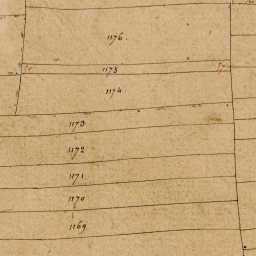 1176.
1175
1174
1173
1172
1171
1170
1169